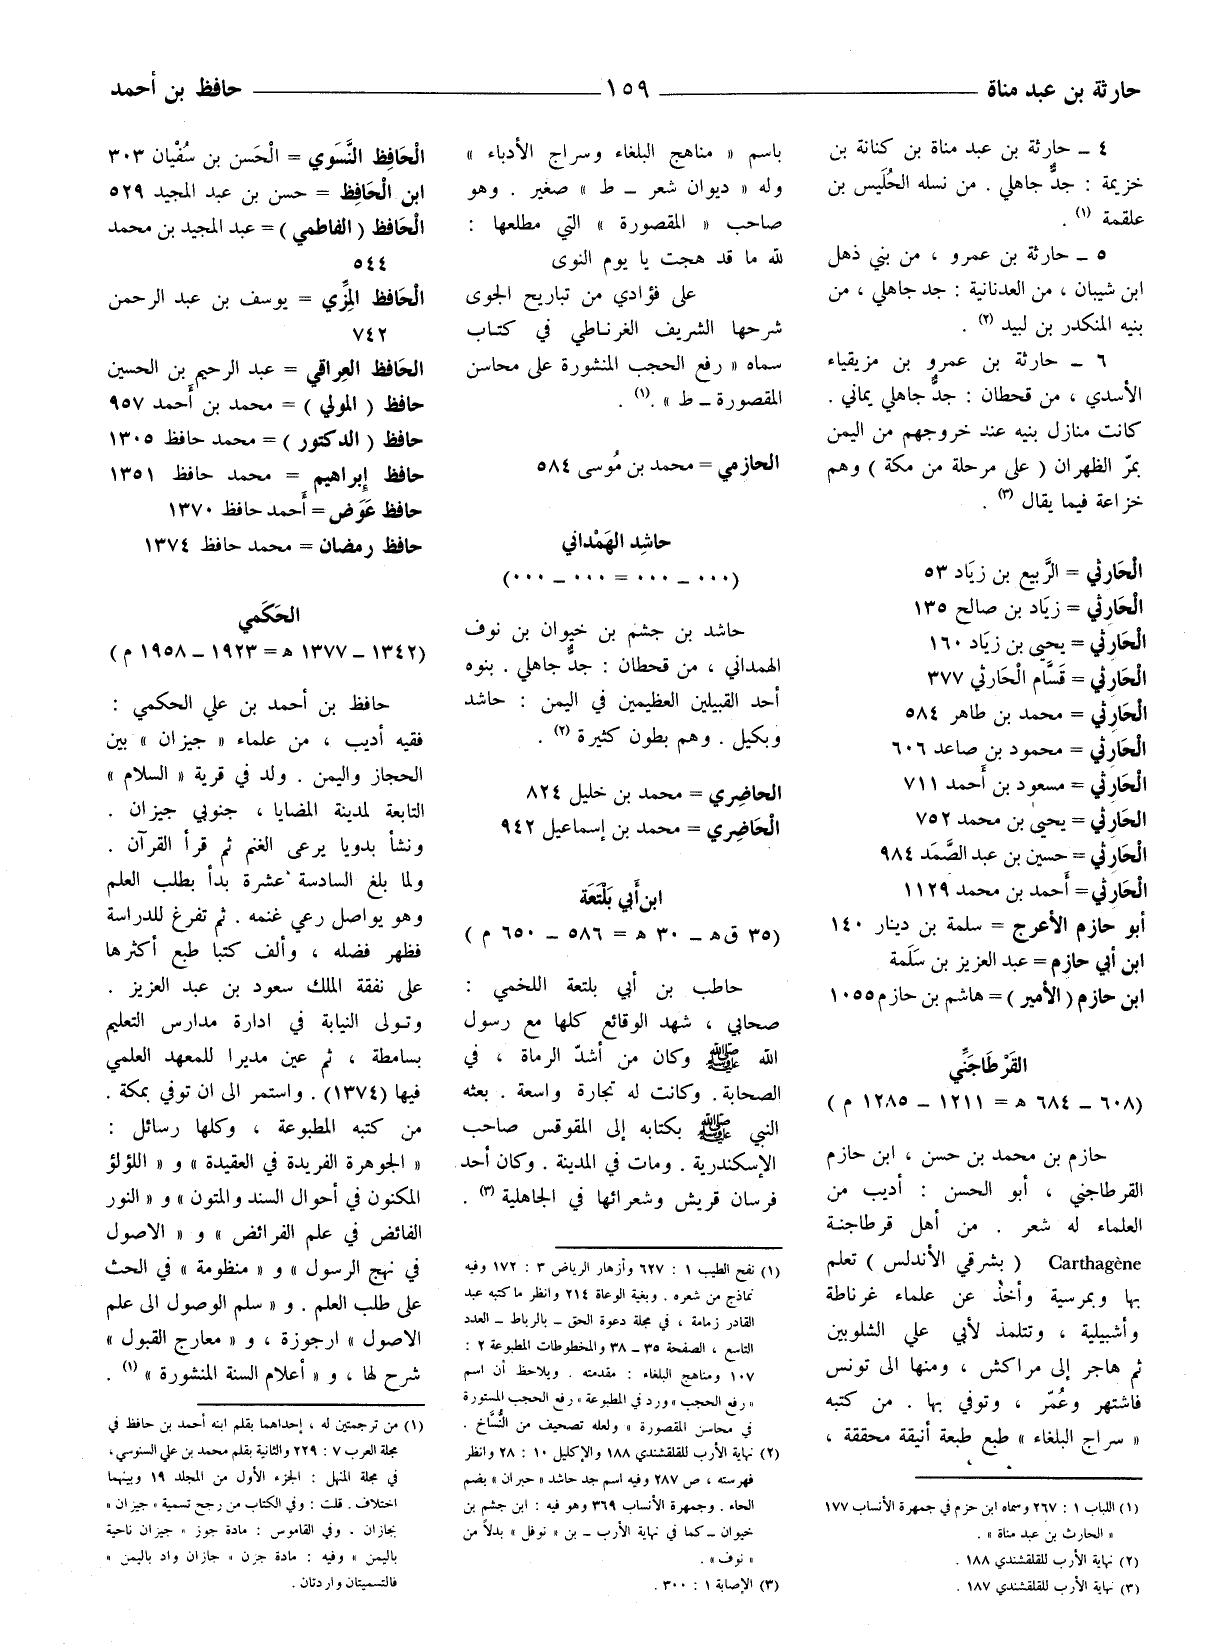 حارثة بن عبد مناة
١٥٩
حافظ بن أحمد
٤ ــ حارثة بن عبد مناة بن كنانة بن
خزيمة : جدٌّ جاهلي . من نسله الحُلَيس بن
علقمة (١) .
٥ ــ حارثة بن عمرو ، من بني ذهل
ابن شيبان ، من العدنانية : جد جاهلي ، من
بنيه المنكدر بن لبيد (٢) .
٦ ــ حارثة بن عمرو بن مزيقياء
الأسدي ، من قحطان : جدٌّ جاهلي يماني .
كانت منازل بنيه عند خروجهم من اليمن
بمرّ الظهران ( على مرحلة من مكة ) وهم
خزاعة فيما يقال (٣) .
الْحَارِثي = الرَّبيع بن زيَاد ٥٣
الْحَارِثي = زيَاد بن صالح ١٣٥
الْحَارِثي = يحيى بن زيَاد ١٦٠
الْحَارِثي = قَسَّام الْحَارثي ٣٧٧
الْحَارِثي = محمد بن طاهر ٥٨٤
الْحَارِثي = محمود بن صاعد ٦٠٦
الْحَارِثي = مسعود بن أَحمد ٧١١
الْحَارِثي = يحيى بن محمد ٧٥٢
الْحَارِثي = حسين بن عبد الصَّمَد ٩٨٤
الْحَارِثي = أَحمد بن محمد ١١٢٩
أبو حازم الأعرج = سلمة بن دينار ١٤٠
ابن أبي حازم = عبد العزيز بن سَلَمة
ابن حازم ( الأمير ) = هاشم بن حازم ١٠٥٥
القَرْطَاجَنِّي
(٦٠٨ ــ ٦٨٤ هـ = ١٢١١ ــ ١٢٨٥ م )
حازم بن محمد بن حسن ، ابن حازم
القرطاجني ، أبو الحسن : أديب من
العلماء له شعر . من أهل قرطاجنة
Carthagène ( بشرقي الأندلس ) تعلم
بها وبمرسية وأخذ عن علماء غرناطة
وأشبيلية ، وتتلمذ لأبي علي الشلوبين
ثم هاجر إلى مراكش ، ومنها الى تونس
فاشتهر وعُمّر ، وتوفي بها . من كتبه
« سراج البلغاء » طبع طبعة أنيقة محققة ،
(١) اللباب ١ : ٢٦٧ وسماه ابن حزم في جمهرة الأنساب ١٧٧
« الحارث بن عبد مناة » .
(٢) نهاية الأرب للقلقشندي ١٨٨ .
(٣) نهاية الأرب للقلقشندي ١٨٧ .
باسم « مناهج البلغاء وسراج الأدباء »
وله « ديوان شعر ــ ط » صغير . وهو
صاحب « المقصورة » التي مطلعها :
لله ما قد هجت يا يوم النوى
على فؤادي من تباريح الجوى
شرحها الشريف الغرناطي في كتاب
سماه « رفع الحجب المنشورة على محاسن
المقصورة ــ ط » .(١) .
الحازمي = محمد بن مُوسى ٥٨٤
حاشِد الهَمْداني
(٠٠٠ ــ ٠٠٠ = ٠٠٠ ــ ٠٠٠)
حاشد بن جشم بن خيوان بن نوف
الهمداني ، من قحطان : جدٌّ جاهلي . بنوه
أحد القبيلين العظيمين في اليمن : حاشد
وبكيل . وهم بطون كثيرة (٢) .
الحاضِري = محمد بن خليل ٨٢٤
الْحَاضِري = محمد بن إسماعيل ٩٤٢
ابن أَبي بَلْتَعَة
(٣٥ ق هـ ــ ٣٠ هـ = ٥٨٦ ــ ٦٥٠ م )
حاطب بن أبي بلتعة اللخمي :
صحابي ، شهد الوقائع كلها مع رسول
الله ﷺ وكان من أشدّ الرماة ، في
الصحابة . وكانت له تجارة واسعة . بعثه
النبي ﷺ بكتابه إلى المقوقس صاحب
الإسكندرية . ومات في المدينة . وكان أحد
فرسان قريش وشعرائها في الجاهلية (٣) .
(١) نفح الطيب ١ : ٦٢٧ وأزهار الرياض ٣ : ١٧٢ وفيه
نماذج من شعره . وبغية الوعاة ٢١٤ وانظر ما كتبه عبد
القادر زمامة ، في مجلة دعوة الحق ــ بالرباط ــ العدد
التاسع ، الصفحة ٣٥ ــ ٣٨ والمخطوطات المطبوعة ٢ :
١٠٧ ومناهج البلغاء : مقدمته . ويلاحظ أن اسم
« رفع الحجب » ورد في المطبوعة « رفع الحجب المستورة
في محاسن المقصورة » ولعله تصحيف من النُّسَّاخ .
(٢) نهاية الأرب للقلقشندي ١٨٨ والإكليل ١٠ : ٢٨ وانظر
فهرسته ، ص ٢٨٧ وفيه اسم جد حاشد « حبران » بضم
الحاء . وجمهرة الأنساب ٣٦٩ وهو فيه : ابن جشم بن
خيوان ــ كما في نهاية الأرب ــ بن « نوفل » بدلاً من
« نوف » .
(٣) الإصابة ١ : ٣٠٠ .
الْحَافِظ النَّسَوي = الْحَسن بن سُفْيان ٣٠٣
ابن الْحَافِظ = حسن بن عبد المجيد ٥٢٩
الْحَافظ ( الفاطمي ) = عبد المجيد بن محمد
٥٤٤
الْحَافظ المِزِّي = يوسف بن عبد الرحمن
٧٤٢
الْحَافظ العِراقي = عبد الرحيم بن الحسين
حافظ ( المولي ) = محمد بن أَحمد ٩٥٧
حافظ ( الدكتور ) = محمد حافظ ١٣٠٥
حافظ إِبراهيم = محمد حافظ ١٣٥١
حافظ عَوَض = أَحمد حافظ ١٣٧٠
حافظ رمضان = محمد حافظ ١٣٧٤
الحَكَمي
(١٣٤٢ ــ ١٣٧٧ هـ = ١٩٢٣ ــ ١٩٥٨ م )
حافظ بن أحمد بن علي الحكمي :
فقيه أديب ، من علماء « جيزان » بين
الحجاز واليمن . ولد في قرية « السلام »
التابعة لمدينة المضايا ، جنوبي جيزان .
ونشأ بدويا يرعى الغنم ثم قرأ القرآن .
ولما بلغ السادسة عشرة بدأ بطلب العلم
وهو يواصل رعي غنمه . ثم تفرغ للدراسة
فظهر فضله ، وألف كتبا طبع أكثرها
على نفقة الملك سعود بن عبد العزيز .
وتولى النيابة في ادارة مدارس التعليم
بسامطة ، ثم عين مديرا للمعهد العلمي
فيها (١٣٧٤) . واستمر الى ان توفي بمكة .
من كتبه المطبوعة ، وكلها رسائل :
« الجوهرة الفريدة في العقيدة » و « اللؤلؤ
المكنون في أحوال السند والمتون » و « النور
الفائض في علم الفرائض » و « الاصول
في نهج الرسول » و « منظومة » في الحث
على طلب العلم . و « سلم الوصول الى علم
الاصول » ارجوزة ، و « معارج القبول »
شرح لها ، و « أعلام السنة المنشورة » (١) .
(١) من ترجمتين له ، إحداهما بقلم ابنه أحمد بن حافظ في
مجلة العرب ٧ : ٢٢٩ والثانية بقلم محمد بن علي السنوسي ،
في مجلة المنهل : الجزء الأول من المجلد ١٩ وبينهما
اختلاف . قلت : وفي الكتاب من رجح تسمية « جيزان »
بجازان . وفي القاموس : مادة جوز « جيزان ناحية
باليمن » وفيه : مادة جزن « جازان واد باليمن »
فالتسميتان واردتان .